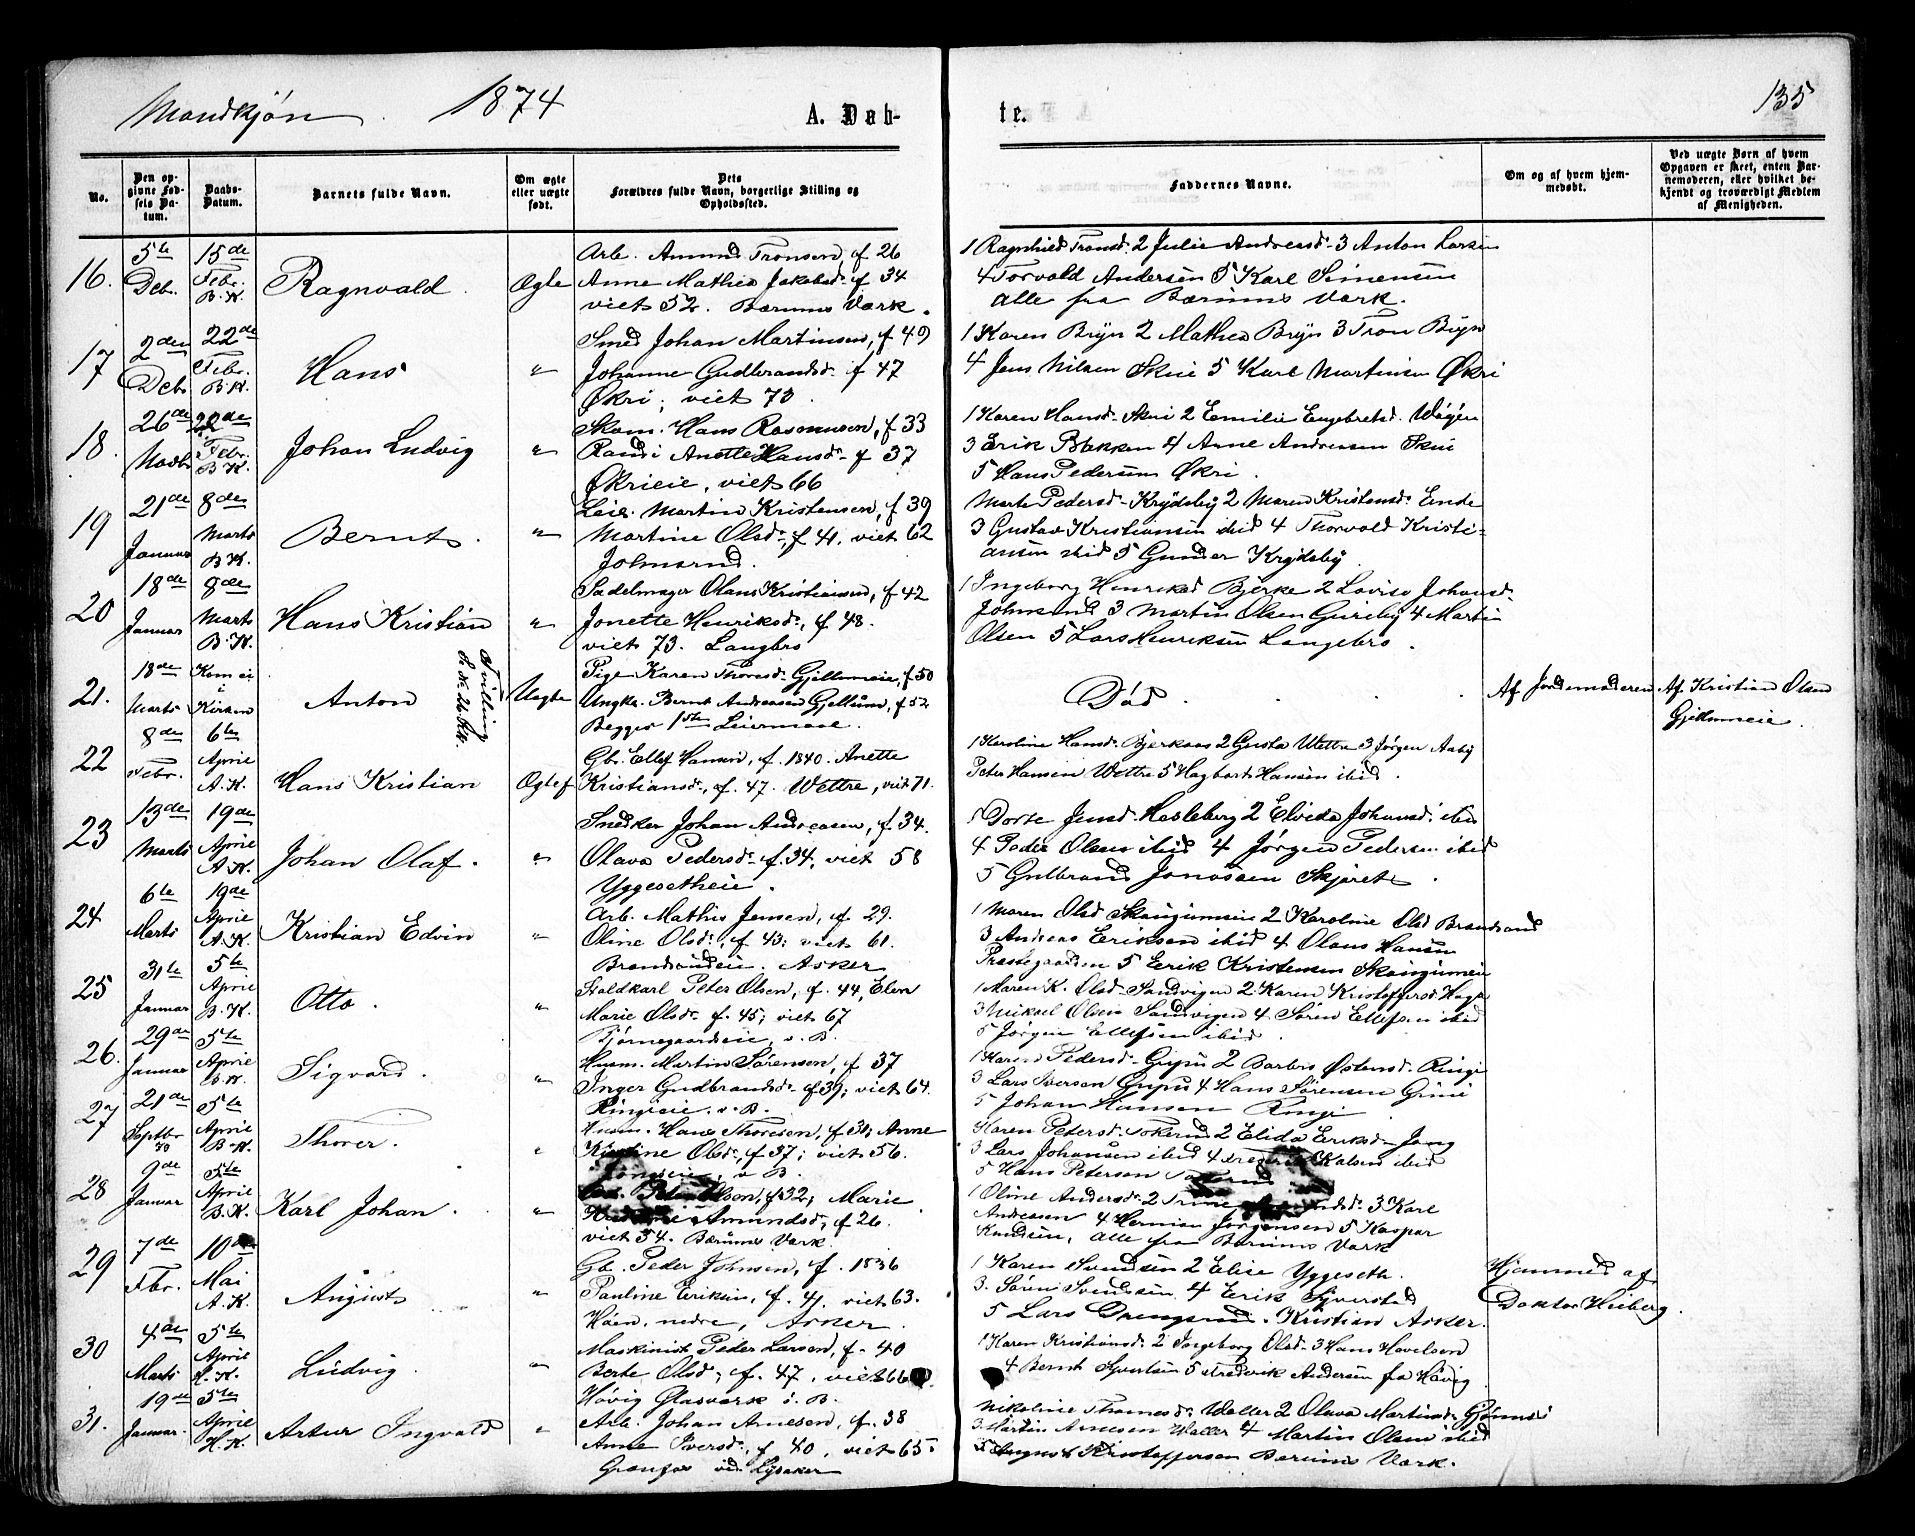 Mandkjøn. 1874 A. Døb-
te. 135
No.
Den opgivne Fødsels Datum.
Daabs-Datum.
Barnets fulde Navn.
Om ægte eller uægte født.
Dets Forældres fulde Navn, borgerlige Stilling og Opholdssted.
Faddernes Navne.
Om og af hvem hjemmedøbt.
Ved uægte Børn af hvem Opgaven er skeet, enten Barnemoderen, eller hvilket bekjendt og troværdigt Medlem af Menigheden.
16. 5te Deb. 15de Febr. B.K. Ragnvald. Ægte
Arb. Amund Tronsen, f 26
Anne Mathea Jakobsd. f 34
viet 52. Bærums Værk.
1 Ragnhild Tronsd. 2 Julie Andreasd. 3 Anton Larsen
4 Torvald Andersen 5 Karl Simensen
alle fra Bærums Værk.
17 2den Debr. 22de Febr. B.K. Hans "
Smed Johan Martinsen, f 49
Johanne Gudbrandsd. f 47
Økri; viet 73.
1 Karen Bryn 2 Mathea Bryn 3 Tron Bryn
4 Jens Nilsen Skui 5 Karl Martinsen Økri
18. 26de Novbr 22de Febr. B.K. Johan Ludvig "
Skom. Hans Rasmussen, f 33
Randi Anette Hansd. f 37
Økrieie, viet 66
1 Karen Hansd. Skui 2 Emilie Engebretsd. Wøyen
3 Erik Bakken 4 Arne Andersen Skui
5 Hans Pedersen Økri.
19 21de Januar 8de Marts B.K. Bernt. "
Leil. Martin Kristensen, f 39
Martine Olsd., f 41. viet 62
Johnsrud.
Marte Pedersd. Krydsby 2 Maren Kristensd. Ende
3 Gustav Kristiansen ibid 4 Thorvald Kristi-
ansen ibid 5 Gunder Krydsby
20 18de Januar 8de Marts B.K. Hans Kristian "
Sadelmager Olaus Kristiansen, f 42
Jonette Henriksd., f 48.
viet 73. Langbro
1 Ingeborg Henriksd Bjerke 2 Lovise Johansd.
Johnsrud 3 Martin Olsen Gureby 4 Martin
Olsen 5 Lars Henriksen Langebro.
21. 18de Marts Kom ei i Kirken Anton Tvilling Uægte
Pige Karen Thoresd. Gjellumeie, f 50
Ungk. Bernt Andreasen Gjellum, f 52
Begges 1ste Leiermaal.
Død.
Af Jordemoderen
Af Kristian Olsen
Gjellumeie.
22 8de Febr. 6te April A.K. Hans Kristian Ægtef
Gbr. Ellef Hansen, f. 1840. Anette
Kristiansd., f. 47. Wettre, viet 71.
1 Karoline Hansd. Bjerkaas 2 Gusta Wettre 3 Jørgen Aaby
Peter Hansen Wettre 5 Hagbart Hansen ibid.
23 13de Marts 19de April A.K. Johan Olaf. "
Snedker Johan Andreasen, f. 34.
Olava Pedersd. f. 34, viet 58
Yggesetheie.
1 Dorte Jensd. Hasleberg 2 Elveda Johansd. ibid
4 Peder Olsen ibid 4 Jørgen Pedersen ibid
5 Gulbrand Jonassen Skjøret.
24 6te Marts 19de April A.K. Kristian Edvin "
Arb. Mathis Jensen, f. 29.
Oline Olsd., f. 43; viet 61.
Brandsrudeie. Asker
1 Maren Olsd Skaugumeie 2 Karoline Olsd Brandsrud
3 Andreas Eriksen ibid 4 Olaus Hansen
Præstegaarden 5 Erik Kristensen Skaugumeie
25 31te Januar 5te April B.K. Otto. "
Staldkarl Peter Olsen, f. 44, Elen
Marie Olsd. f. 45; viet 67
Bjørnegaardseie, v. B.
1 Maren K. Olsd. Sandvigen 2 Karen Kristoffersd. Haga
3 Mikael Olsen Sandvigen 4 Søren Ellefsen ibid
5 Jørgen Ellefsen ibid.
26. 29de Januar 5te April B.K. Sigvard. "
Husm. Martin Sørensen, f 37
Inger Gudbrandsd. f 39; viet 64.
Ringieie. v. B.
1 Karen Pedersd. Gupu 2 Barbro Østensd. Ringi
3 Lars Iversen Gupu 4 Hans Sørensen Grini
5 Johan Hansen Ringi
27 21de Septbr 73 5te April B.K. Thorer. "
Husm. Hans Thoresen, f 30; Anne
Kirstine Olsd., f 37; viet 56.
v B.
Karen Petersd. Tokerud 2 Elida Eriksd. Jong
3 Lars Johansen ibid 4 ibid
5 Hans Petersen
28 9de Januar 5te April B.K. Karl Johan. "
Olsen, f 32, Marie
Amundsd, f 26.
viet 54. Bærums Værk
1 Oline Andersd. 2 Trine 3 Karl
Andreasen 4 Herman Jørgensen 5 Kaspar
Knudsen, alle fra Bærums Værk
29 7de Fbr. 10de Mai A.K. August "
Gb. Peder Johnsen, f. 1836
Pauline Eriksen, f. 41. viet 63.
Høen, nedre, Asker.
1 Karen Svendsen 2 Elise Yggeseth.
3. Søren Svendsen 4 Erik Syverstad
5 Lars Drengsrud. Kristian Asker.
Hjemmed. af
Doktor Hiberg.
30 4de Marts 5te April H.K. Ludvig. "
Maskinist Peder Larsen, f. 40
Berte Olsd., f. 47, viet 66
Høvig Glasværk i. B.
1 Karen Kristiansd. 2 Ingeborg Olsd. 3 Hans Havelsen
4 Bernt Syvertsen 5 Fredevik Andersen fra Høvig
31. 19de Januar. 5te April H.K. Artur Ingvald "
Arb. Johan Arnesen, f. 38
Anne Iversd., f 40, viet 65.
Granfos ved Lysaker
Nikoline Thomesd. Waller 2 Olava Martinsd. Gjønnes
3. Martin Arnesen Waller 4 Martin Olsen ibid
5 August Kristoffersen Bærums Værk.